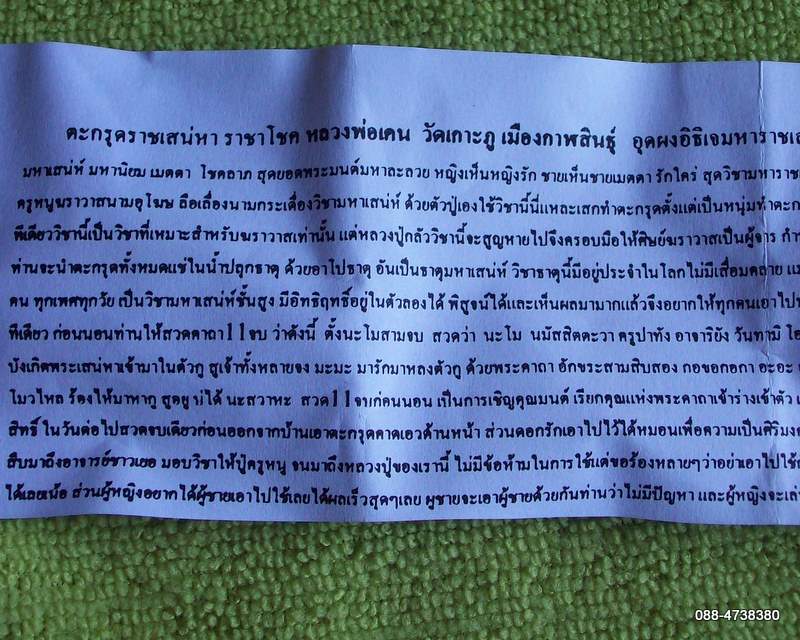 ตะกรุดราชเสน่หา ราชาโชค หลวงพ่อเคน วัดเกาะภู เมืองกาฬสินธุ์ อุดผงอิธิเจมหาราชเส
มหาเสน่ห์ มหานิยม เมตตา โชคลาภ สุดยอดพระมนต์มหาละลวย หญิงเห็นหญิงรัก ชายเห็นชายเมตตา รักใคร่ สุดวิชามหาราช
ครูหนูฆราวาสนามอุโฆษ ลือเลื่องนามกระเดื่องวิชามหาเสน่ห์ ด้วยตัวปู่เองใช้วิชานี้นี่แหละเสกทำตะกรุดตั้งแต่เป็นหนุ่มทำตะก
ทีเดียววิชานี้เป็นวิชาที่เหมาะสำหรับฆราวาสเท่านั้น แต่หลวงปู่กลัววิชานี้จะสูญหายไปจึงครอบมือให้ศิษย์ฆราวาสเป็นผู้จาร กำ
ท่านจะนำตะกรุดทั้งหมดแช่ในน้ำปลุกธาตุ ด้วยอาโปธาตุ อันเป็นธาตุมหาเสน่ห์ วิชาธาตุนี้มีอยู่ประจำในโลกไม่มีเสื่อมคลาย แม
คน ทุกเพศทุกวัย เป็นวิชามหาเสน่ห์ชั้นสูง มีอิทธิฤทธิ์อยู่ในตัวลองได้ พิสูจน์ได้และเห็นผลมามากแล้วจึงอยากให้ทุกคนเอาไป
ทีเดียว ก่อนนอนท่านให้สวดคาถา11จบ ว่าดังนี้ ตั้งนะโมสามจบ สวดว่า นะโม นมัสสิตตะวา ครูปาทัง อาจาริยัง วันทามิ โอ
บังเกิดพระเสน่หาเข้ามาในตัวกู สูเจ้าทั้งหลายจง มะมะ มารักมาหลงตัวกู ด้วยพระคาถา อักขระสามสิบสอง กอขอกอกา อะอะ
โมวไหล ร้องไห้มาหากู สูอยู่ บ่ได้ นะสวาหะ สวด11จบก่อนนอน เป็นการเชิญคุณมนต์ เรียกคุณแห่งพระคาถาเจ้าร่างเข้าตัว
สิทธิ์ ในวันต่อไปสวดจบเดียวก่อนออกจากบ้านเอาตะกรุดคาดเอวด้านหน้า ส่วนดอกรักเอาไปไว้ใต้หมอนเพื่อความเป็นศิริมงค
สืบมาถึงอาจารย์ชาวเยอ มอบวิชาให้ปู่ครูหนู จนมาถึงหลวงปู่ของเรานี้ ไม่มีข้อห้ามในการใช้แต่ขอร้องหลายๆว่าอย่าเอาไปใช้
ได้เลยเน้อ ส่วนผู้หญิงอยากได้ผู้ชายเอาไปใช้เลยได้ผลเร็วสุดๆเลย ผู้ชายจะเอาผู้ชายด้วยกันท่านว่าไม่มีปัญหา และผู้หญิงจะเล่
088-4738380